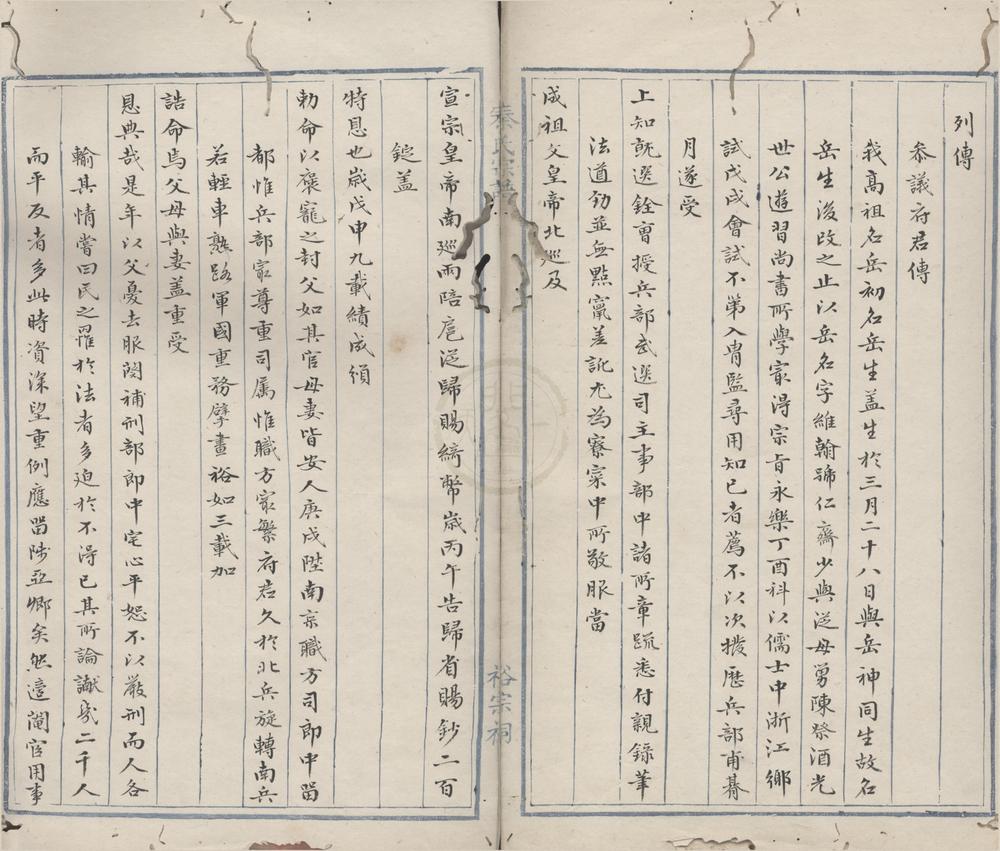 列傳
叅議府君傳
我高祖名岳初名岳生盖生於三月二十八日與岳神同生故名
岳生後改之止以岳名字維翰號仁齋少與從母舅陳祭酒光
世公遊習尚書所學最得宗旨永樂丁酉科以儒士中浙江鄉
試戊戌會試不第入胄監尋用知已者薦不以次撥歷兵部甫朞
月遂受
上知旣選銓曹授兵部武選司主事部中諸所章疏悉付親錄筆
法道勁並無點竄差訛尤為寮寀中所敬服當
成祖文皇帝北巡及
秦氏宗譜
裕宗祠
宣宗皇帝南巡兩陪扈從歸賜綺幣歲丙午告歸省賜鈔二百
錠盖
特恩也歲戊申九載績成頒
勅命以褒寵之封父如其官母妻皆安人庚戌陞南京職方司郎中畱
都惟兵部最尊重司属惟職方最繁府君久於北兵旋轉南兵
若輕車熟路軍國重務擘畫裕如三載加
誥命焉父母與妻盖重受
恩典哉是年以父憂去服闋補刑部郎中宅心平恕不以嚴刑而人各
輸其情嘗曰民之罹於法者多迫於不得已其所論讞幾二千人
而平反者多此時資深望重例應畱陟亞卿矣然遭閹官用事